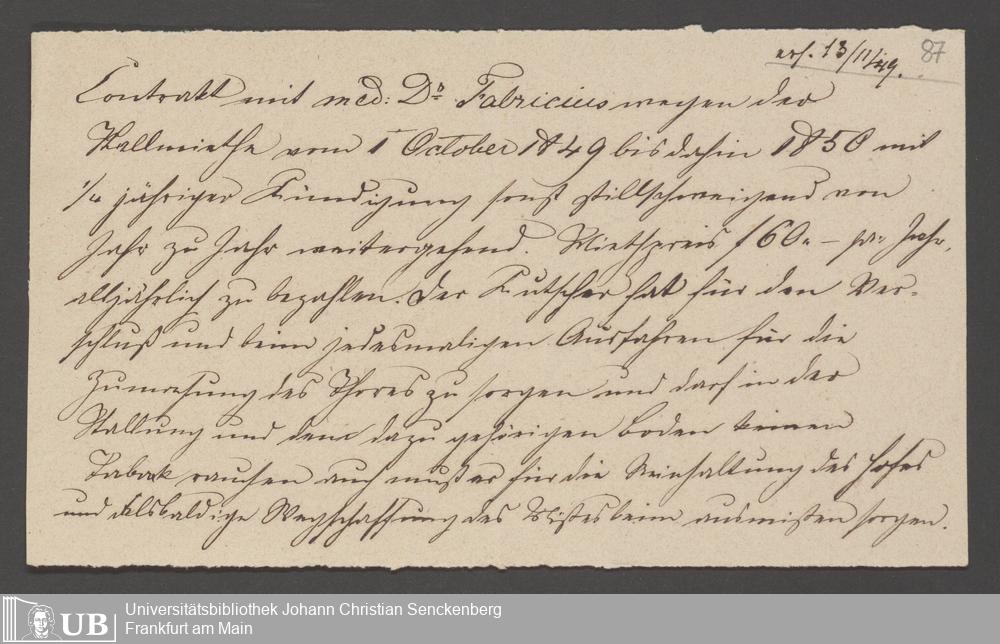 erh. 13/11/49.
87
Contrakt mit med: Dr. Fabricius wegen der
Stallmiethe vom 1t October 1849 bis dahin 1850 mit
1/4 jähriger Kündigung sonst stillschweigend von
Jahr zu Jahr weitergehend. Miethpreis f 60. – pr. Jahr,
alljährlich zu bezahlen. Der Kutscher hat für den Ver-
schluß und beim jedesmaligen Ausfahren für die
Zumachung des Thores zu sorgen und darf in der
Stallung und dem dazu gehörigen Boden keinen
Taback rauchen auch muß er für die Reinhaltung des Hofes
und alsbaldige Wegschaffung des Mistes beim ausmisten sorgen.
UB
Universitätsbibliothek Johann Christian Senckenberg
Frankfurt am Main